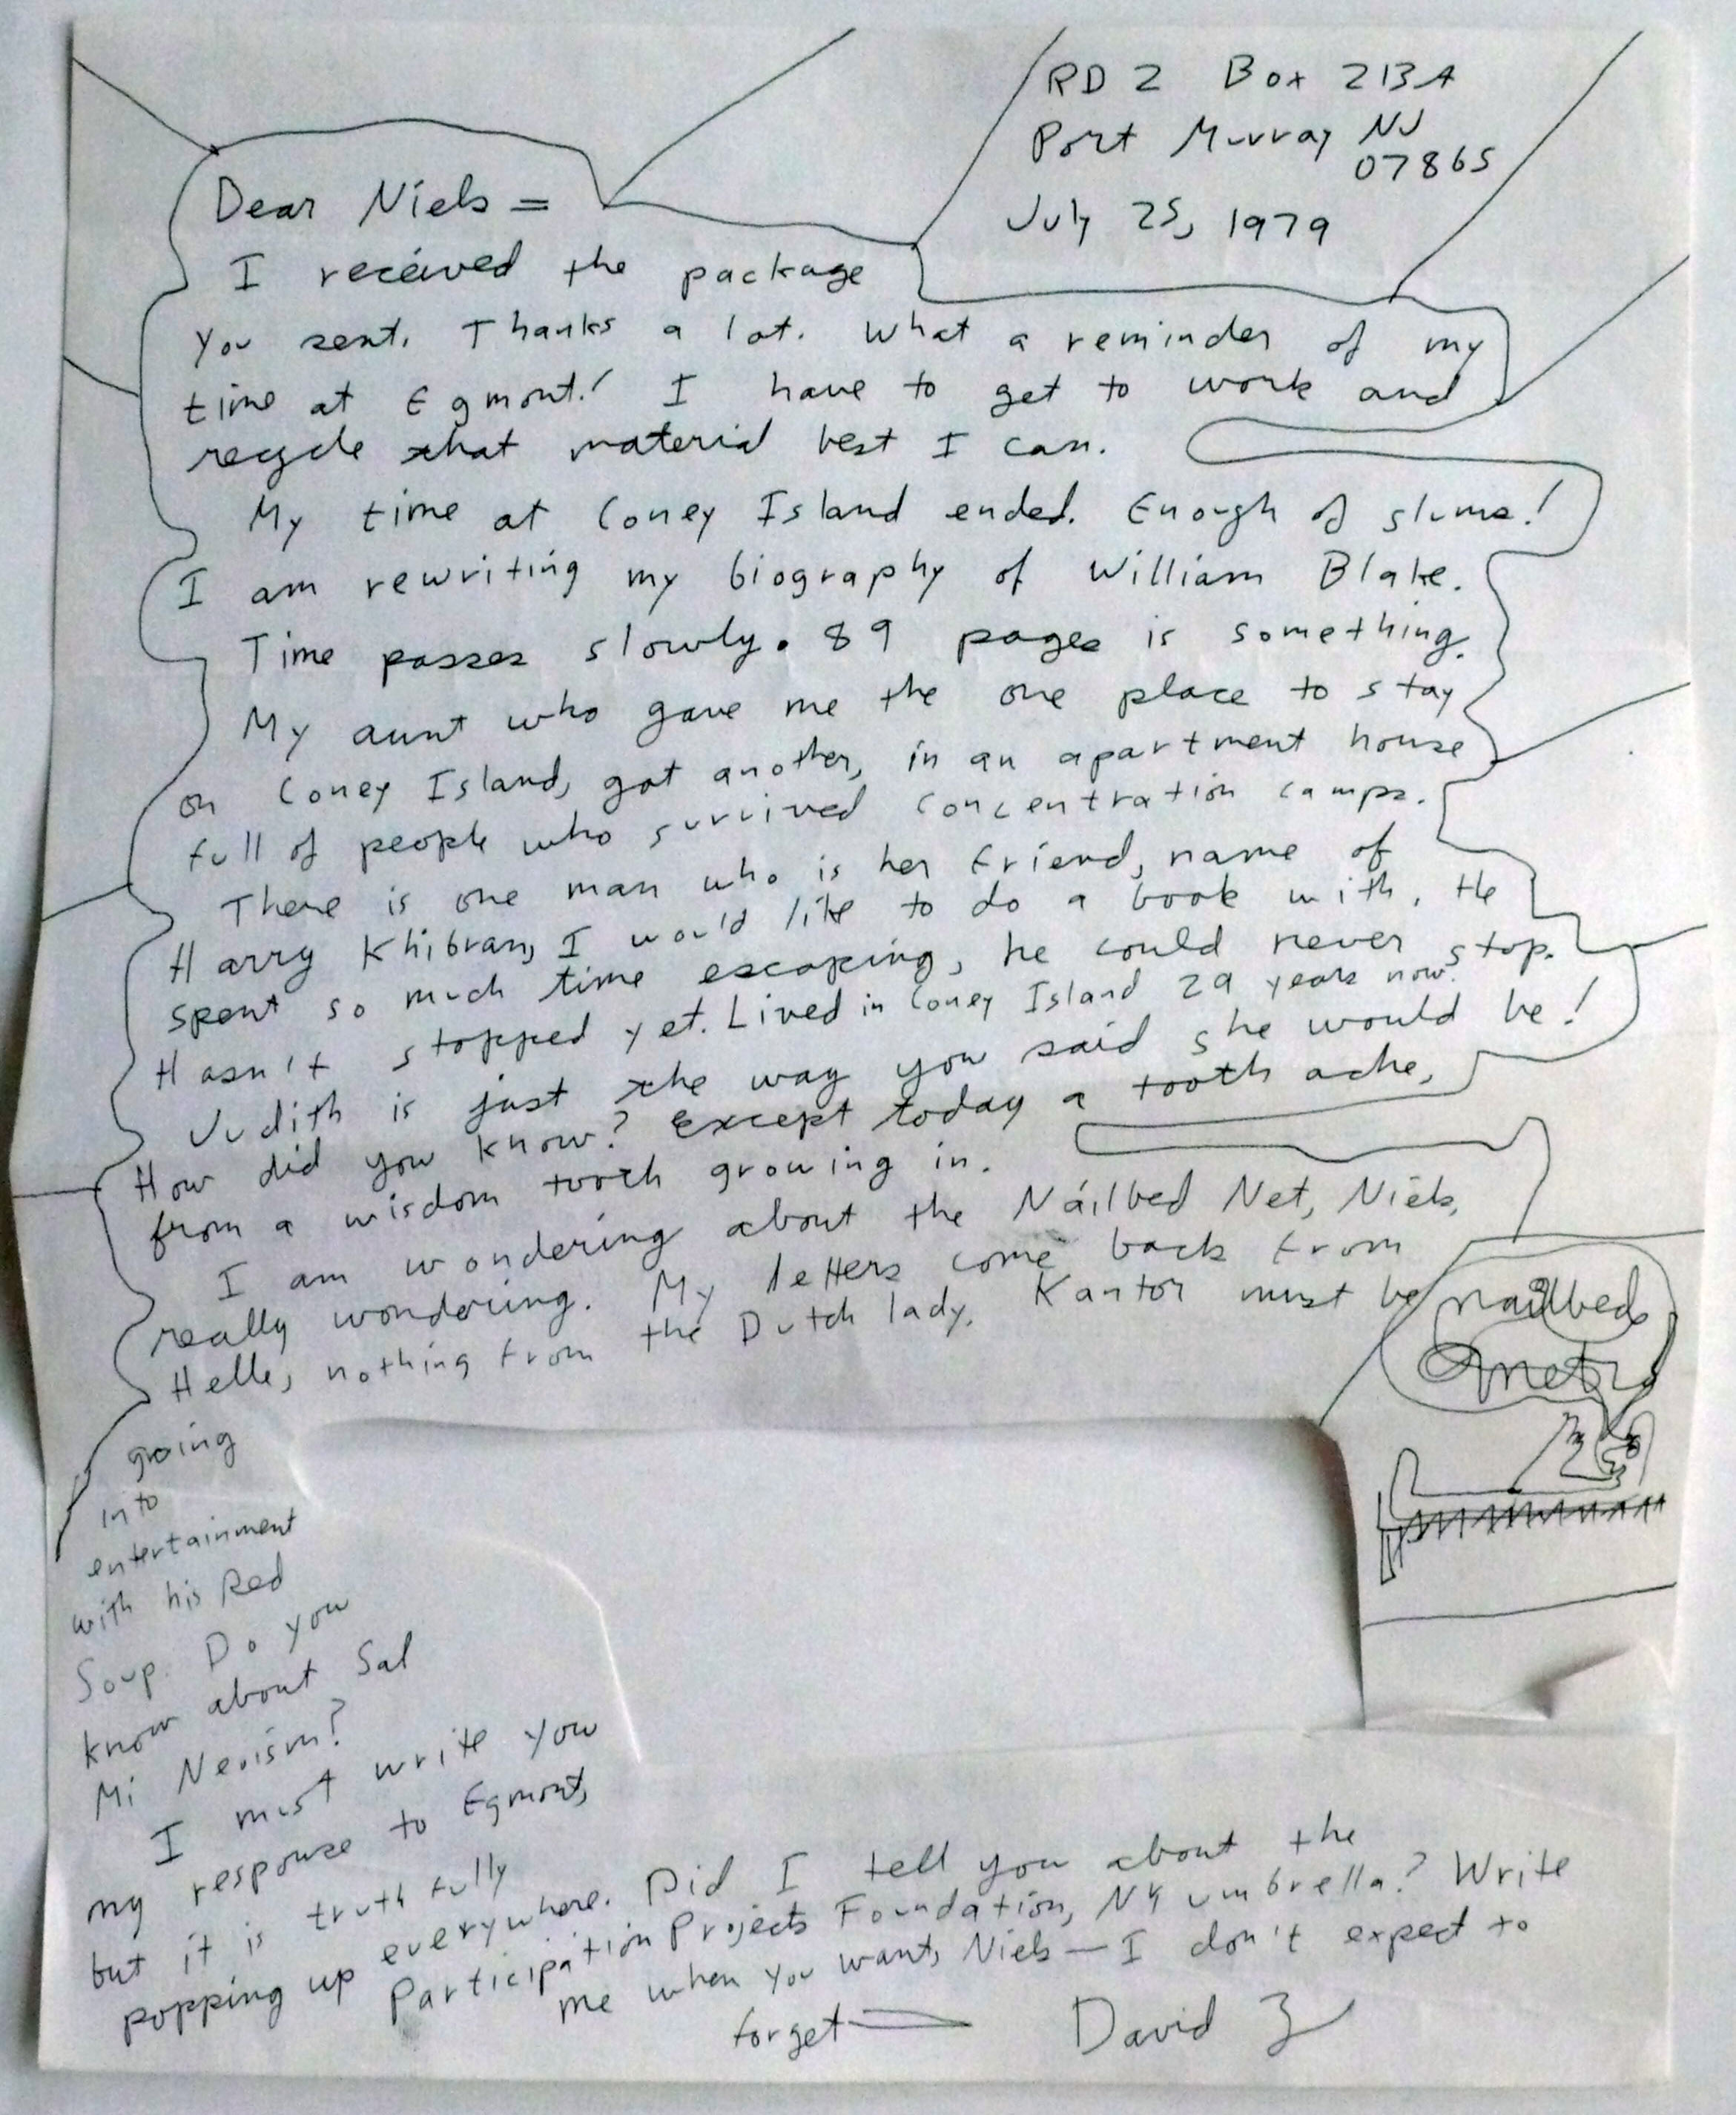 RD 2 Box 213A
Port Murray NJ
07865
July 25, 1979
Dear Niels =
I received the package
you sent. Thanks a lot. What a reminder of my
time at Egmont! I have to get to work and
recycle that material best I can.
My time at Coney Island ended. Enough of slums!
I am rewriting my biography of William Blake.
Time passes slowly. 89 pages is something.
My aunt who gave me the one place to stay
on Coney Island, got another, in an apartment house
full of people who survived concentration camps.
There is one man who is her friend, name of
Harry Khibran, I would like to do a book with. He
spent so much time escaping, he could never stop.
Hasn't stopped yet. Lived in Coney Island 29 years now.
Judith is just the way you said she would be!
How did you know? Except today a tooth ache,
from a wisdom tooth growing in.
I am wondering about the Nailbed Net, Niels,
really wondering. My letters come back from
Helle, nothing from the Dutch lady. Kantor must be
going
into
entertainment
with his Red
Soup. Do you
know about Sal
Mi Neoism?
I must write you
my response to Egmont,
but it is truthfully
popping up everywhere. Did I tell you about the
Participation Projects Foundation, NY umbrella? Write
me when you want, Niels — I don't expect to
forget
David Z
nailbed
net